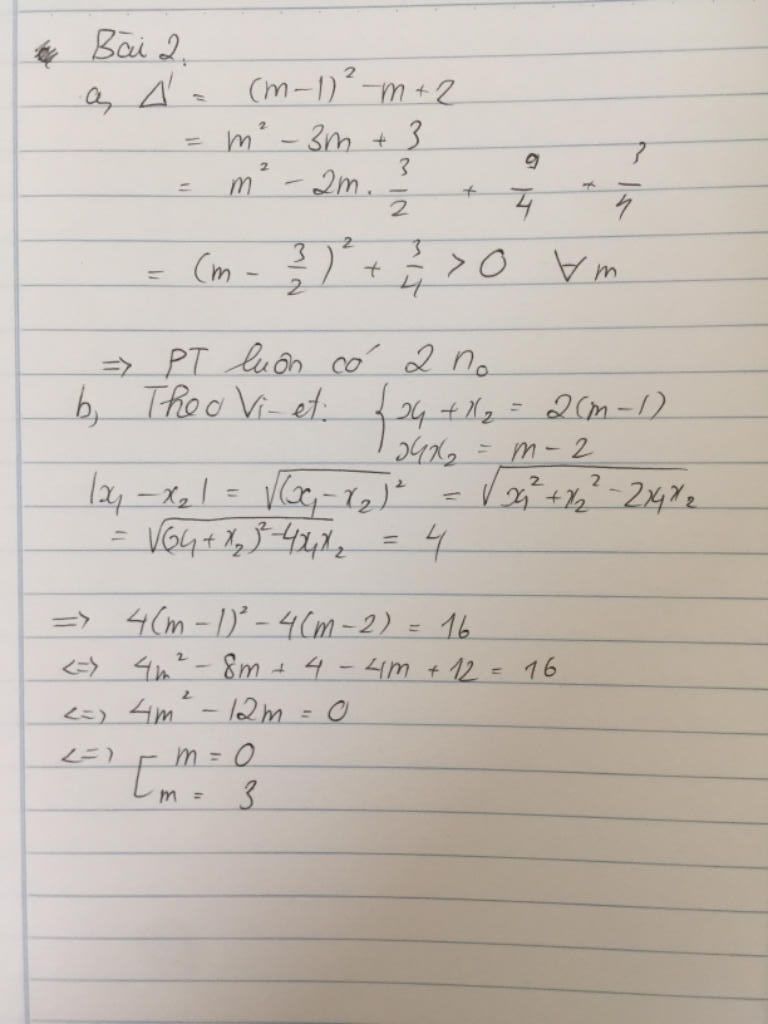 Bài 2.
a, Δ' = (m-1)² -m+2
= m² - 3m + 3
= m² - 2m. 3/2 + 9/4 + 3/4
= (m - 3/2)² + 3/4 > 0 ∀m
=> PT luôn có 2 n₀
b, Theo Vi-et: { x₁ + x₂ = 2(m-1)
x₁x₂ = m-2
|x₁ - x₂| = √(x₁-x₂)² = √x₁²+x₂²-2x₁x₂
= √(x₁+x₂)²-4x₁x₂ = 4
=> 4(m-1)² - 4(m-2) = 16
<=> 4m² - 8m + 4 - 4m + 12 = 16
<=> 4m² - 12m = 0
<=> [ m = 0
m = 3